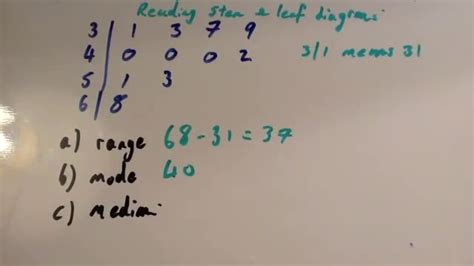 Reading stem & leaf diagrams
3 | 1 3 7 9
4 | 0 0 0 2 3/1 means 31
5 | 1 3
6 | 8
a) range 68-31=37
b) mode 40
c) median